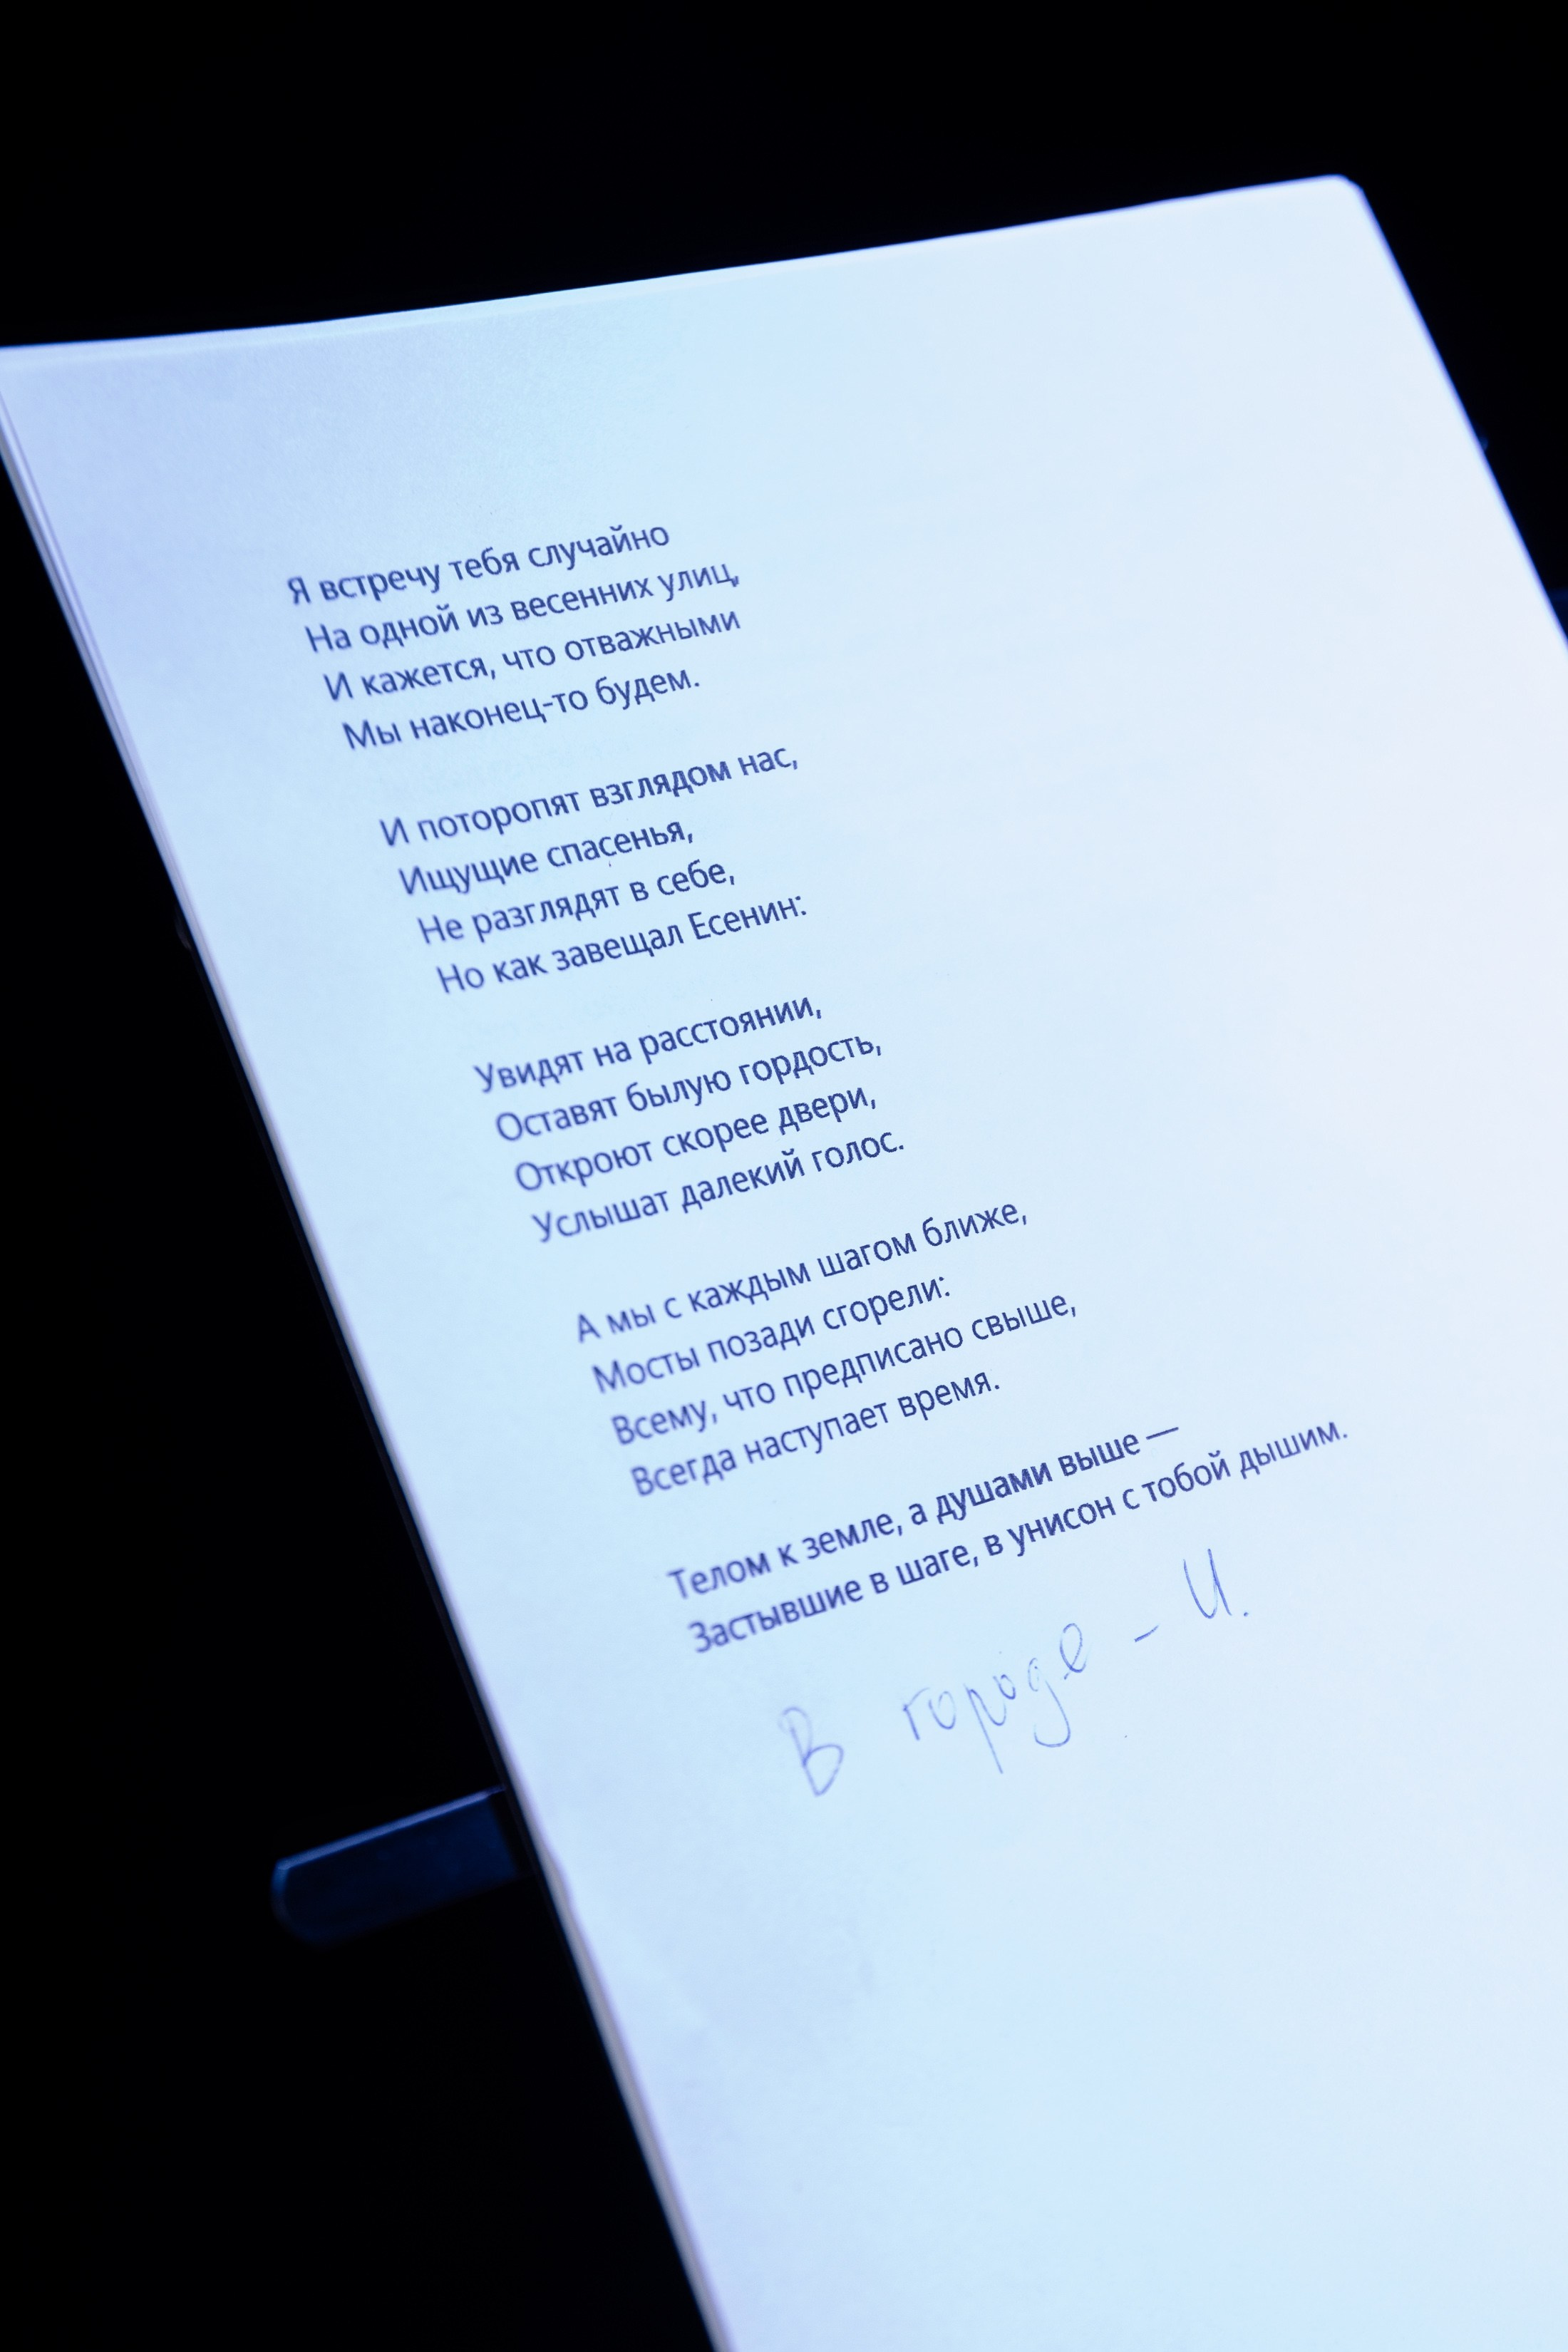 Я встречу тебя случайно
На одной из весенних улиц,
И кажется, что отважными
Мы наконец-то будем.
И поторопят взглядом нас,
Ищущие спасенья,
Не разглядят в себе,
Но как завещал Есенин:
Увидят на расстоянии,
Оставят былую гордость,
Откроют скорее двери,
Услышат далекий голос.
А мы с каждым шагом ближе,
Мосты позади сгорели:
Всему, что предписано свыше,
Всегда наступает время.
Телом к земле, а душами выше —
Застывшие в шаге, в унисон с тобой дышим.
В городе - И.